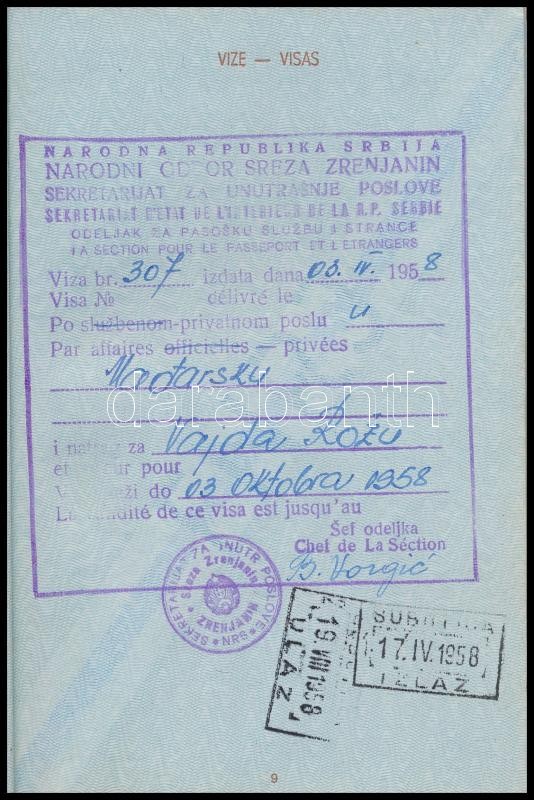 VIZE — VISAS
NARODNA REPUBLIKA SRBIJA
NARODNI ODBOR SREZA ZRENJANIN
SEKRETARIJAT ZA UNUTRAŠNJE POSLOVE
SEKRETARIAT D'ETAT DE L'INTERIEUR DE LA R.P. SERBIE
ODELJAK ZA PASOŠKU SLUŽBU I STRANCE
LA SECTION POUR LE PASSEPORT ET LETRANGERS
Viza br. 307 izdata dana 03. IV. 1958
Visa № délivré le
Po službenom-privatnom poslu u
Par affaires officielles — privées
Mađarsku
darabanth
i natrag za Vajda Rožu
et pour
do 03 Oktobra 1958
La validité de ce visa est jusqu'au
Šef odeljka
Chef de La Séction
SEKRETARIJAT ZA UNUTR. POSLOVE
Sreza Zrenjanin
ZRENJANIN
NRS
SUBOTICA
17. IV. 1958
IZLAZ
19 VIII 1958
ULAZ
9